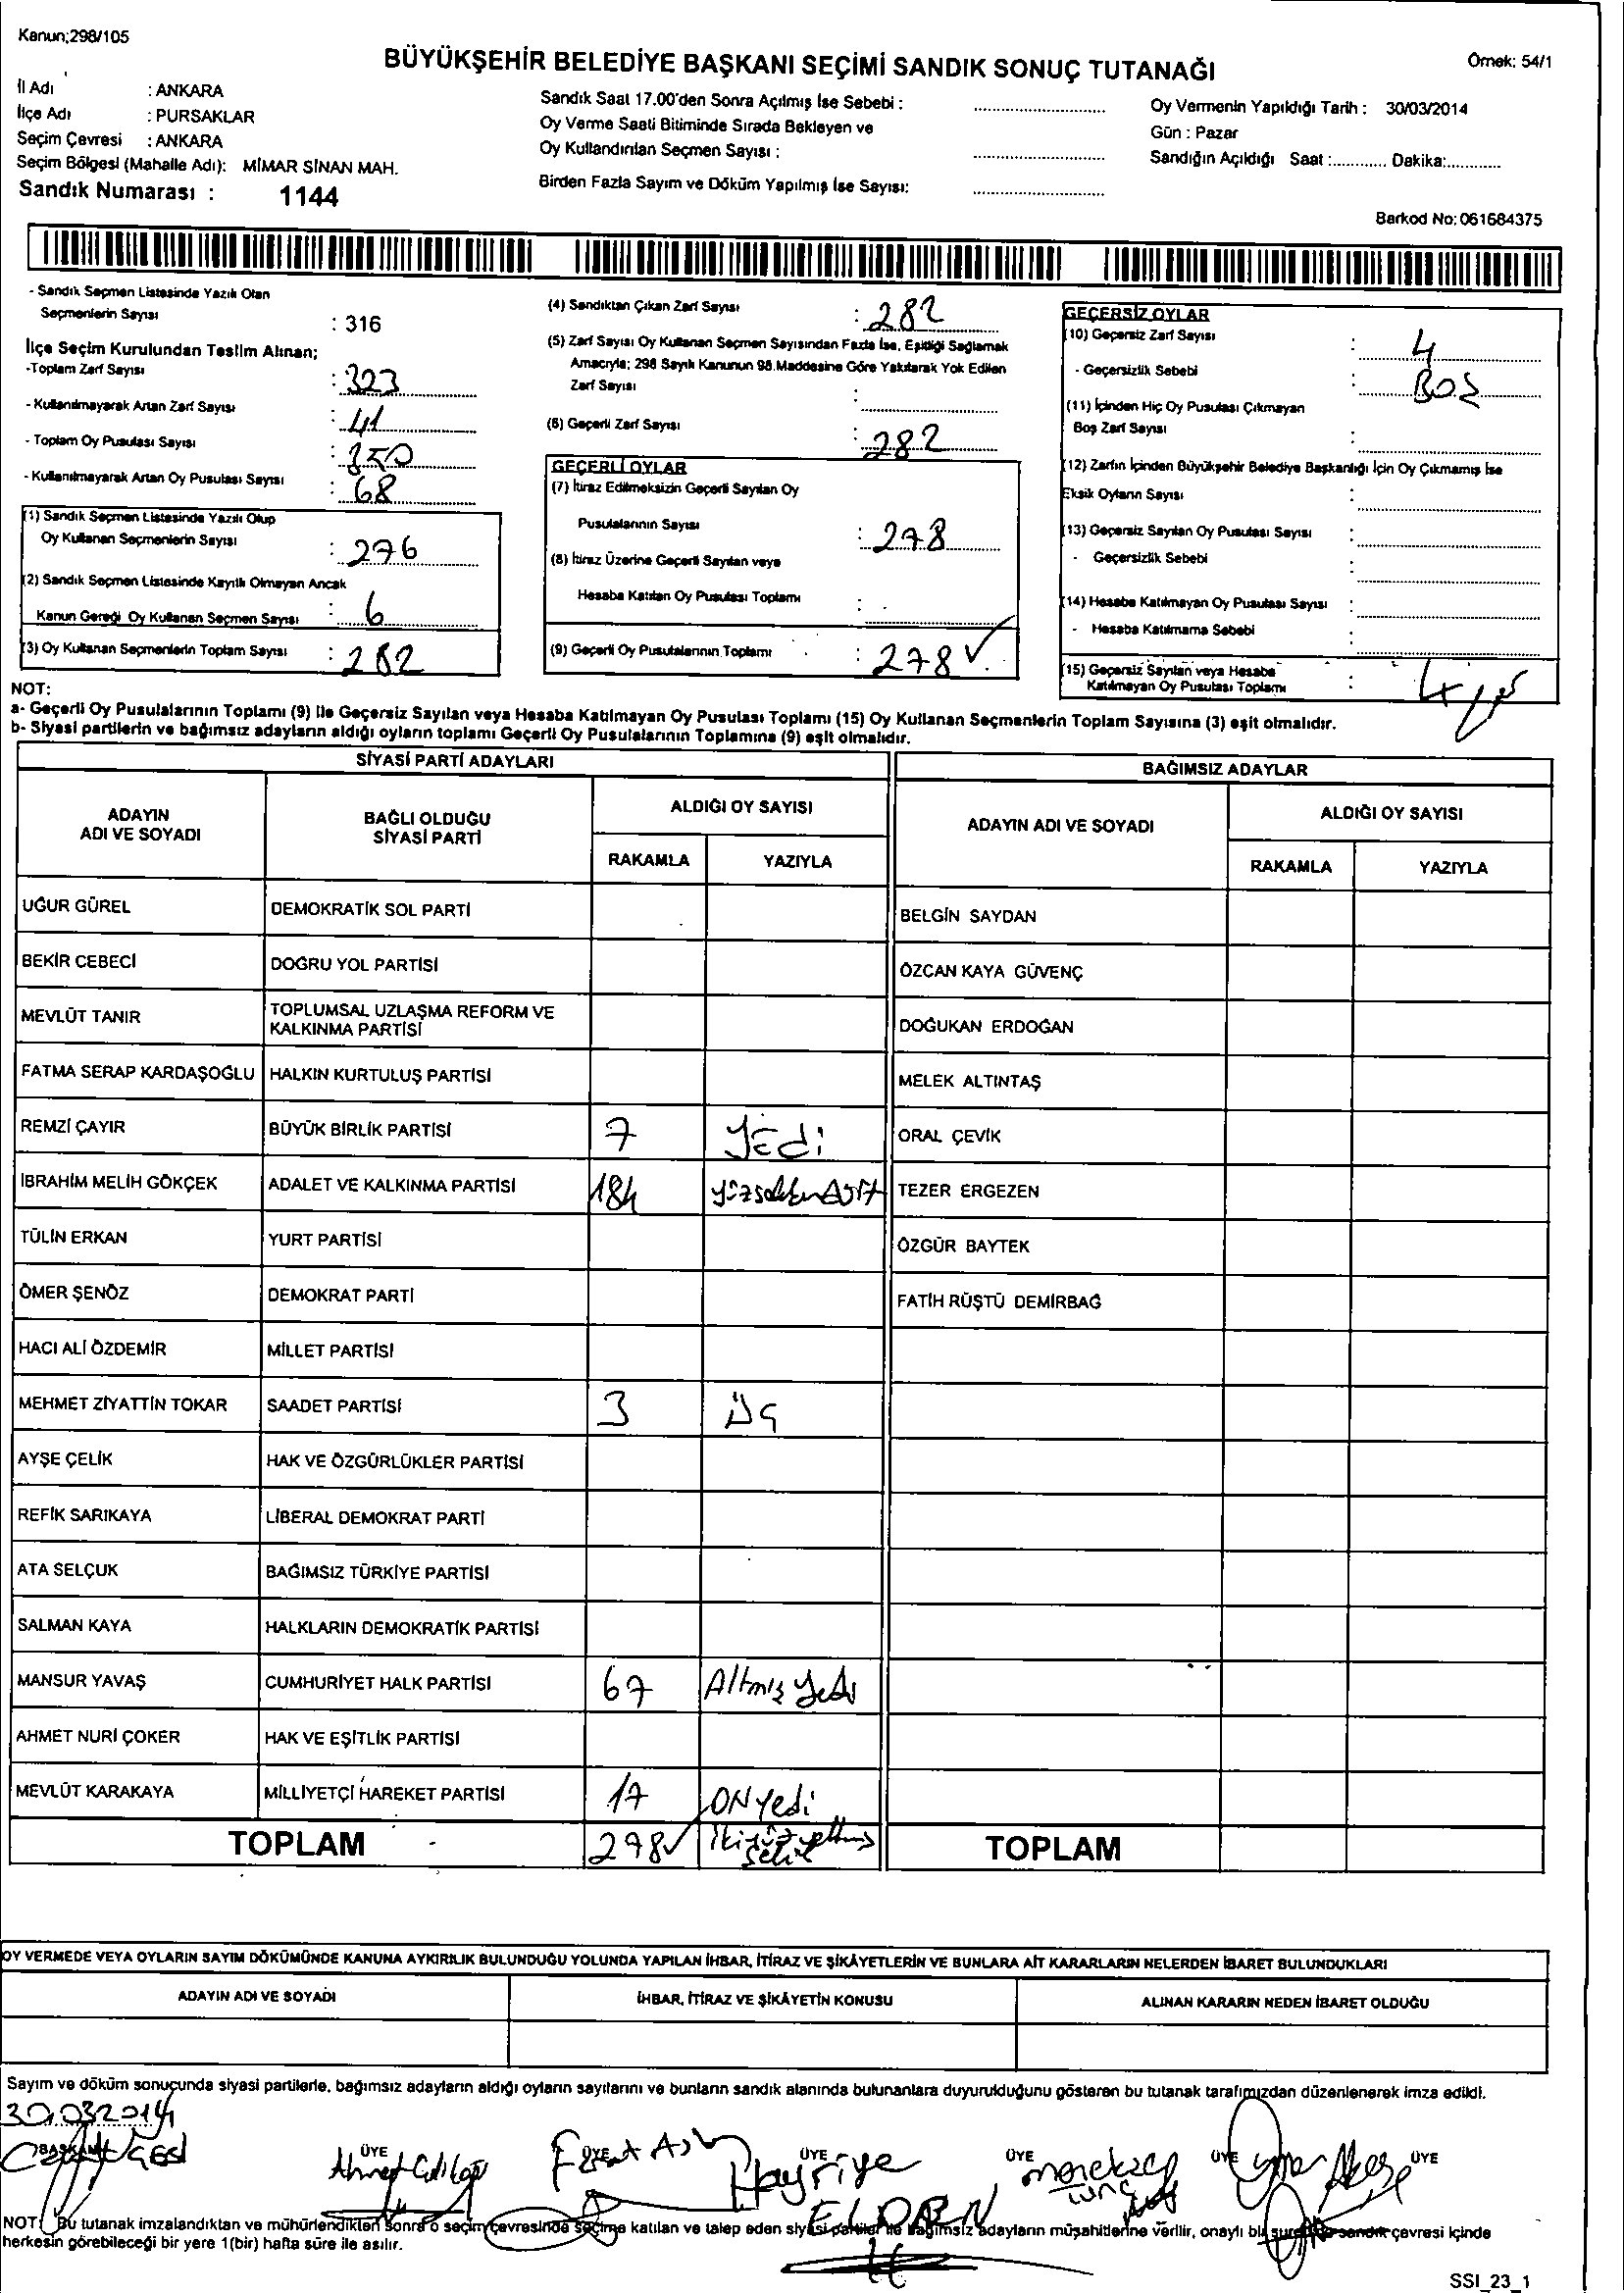 Kanun;298/105
BÜYÜKŞEHİR BELEDİYE BAŞKANI SEÇİMİ SANDIK SONUÇ TUTANAĞI
Örnek: 54/1
İl Adı : ANKARA
İlçe Adı : PURSAKLAR
Seçim Çevresi : ANKARA
Seçim Bölgesi (Mahalle Adı): MİMAR SİNAN MAH.
Sandık Numarası : 1144
Sandık Saat 17.00'den Sonra Açılmış İse Sebebi :
Oy Verme Saati Bitiminde Sırada Bekleyen ve
Oy Kullandırılan Seçmen Sayısı :
Birden Fazla Sayım ve Döküm Yapılmış İse Sayısı:
Oy Vermenin Yapıldığı Tarih : 30/03/2014
Gün : Pazar
Sandığın Açıldığı Saat :............ Dakika:............
Barkod No: 061684375
- Sandık Seçmen Listesinde Yazılı Olan
Seçmenlerin Sayısı : 316
İlçe Seçim Kurulundan Teslim Alınan;
-Toplam Zarf Sayısı : 323
- Kullanılmayarak Artan Zarf Sayısı : 41
- Toplam Oy Pusulası Sayısı : 350
- Kullanılmayarak Artan Oy Pusulası Sayısı : 68
(1) Sandık Seçmen Listesinde Yazılı Olup
Oy Kullanan Seçmenlerin Sayısı : 276
(2) Sandık Seçmen Listesinde Kayıtlı Olmayan Ancak
Kanun Gereği Oy Kullanan Seçmen Sayısı : 6
(3) Oy Kullanan Seçmenlerin Toplam Sayısı : 282
(4) Sandıktan Çıkan Zarf Sayısı : 282
(5) Zarf Sayısı Oy Kullanan Seçmen Sayısından Fazla İse, Eşitliği Sağlamak
Amacıyla; 298 Sayılı Kanunun 98.Maddesine Göre Yakılarak Yok Edilen
Zarf Sayısı :
(6) Geçerli Zarf Sayısı : 282
GEÇERLİ OYLAR
(7) İtiraz Edilmeksizin Geçerli Sayılan Oy
Pusulalarının Sayısı : 278
(8) İtiraz Üzerine Geçerli Sayılan veya
Hesaba Katılan Oy Pusulası Toplamı :
(9) Geçerli Oy Pusulalarının Toplamı : 278
GEÇERSİZ OYLAR
(10) Geçersiz Zarf Sayısı : 4
- Geçersizlik Sebebi : BOŞ
(11) İçinden Hiç Oy Pusulası Çıkmayan
Boş Zarf Sayısı :
(12) Zarfın İçinden Büyükşehir Belediye Başkanlığı İçin Oy Çıkmamış İse
Eksik Oyların Sayısı :
(13) Geçersiz Sayılan Oy Pusulası Sayısı :
- Geçersizlik Sebebi :
(14) Hesaba Katılmayan Oy Pusulası Sayısı :
- Hesaba Katılmama Sebebi :
(15) Geçersiz Sayılan veya Hesaba
Katılmayan Oy Pusulası Toplamı : 4
NOT:
a- Geçerli Oy Pusulalarının Toplamı (9) İle Geçersiz Sayılan veya Hesaba Katılmayan Oy Pusulası Toplamı (15) Oy Kullanan Seçmenlerin Toplam Sayısına (3) eşit olmalıdır.
b- Siyasi partilerin ve bağımsız adayların aldığı oyların toplamı Geçerli Oy Pusulalarının Toplamına (9) eşit olmalıdır.
SİYASİ PARTİ ADAYLARI
BAĞIMSIZ ADAYLAR
ADAYIN ADI VE SOYADI
BAĞLI OLDUĞU SİYASİ PARTİ
ALDIĞI OY SAYISI
RAKAMLA YAZIYLA
ADAYIN ADI VE SOYADI
ALDIĞI OY SAYISI
RAKAMLA YAZIYLA
UĞUR GÜREL DEMOKRATİK SOL PARTİ BELGİN SAYDAN
BEKİR CEBECİ DOĞRU YOL PARTİSİ ÖZCAN KAYA GÜVENÇ
MEVLÜT TANIR TOPLUMSAL UZLAŞMA REFORM VE KALKINMA PARTİSİ DOĞUKAN ERDOĞAN
FATMA SERAP KARDAŞOĞLU HALKIN KURTULUŞ PARTİSİ MELEK ALTINTAŞ
REMZİ ÇAYIR BÜYÜK BİRLİK PARTİSİ 7 YEdi ORAL ÇEVİK
İBRAHİM MELİH GÖKÇEK ADALET VE KALKINMA PARTİSİ 184 yüzseksendört TEZER ERGEZEN
TÜLİN ERKAN YURT PARTİSİ ÖZGÜR BAYTEK
ÖMER ŞENÖZ DEMOKRAT PARTİ FATİH RÜŞTÜ DEMİRBAĞ
HACI ALİ ÖZDEMİR MİLLET PARTİSİ
MEHMET ZİYATTİN TOKAR SAADET PARTİSİ 3 Üç
AYŞE ÇELİK HAK VE ÖZGÜRLÜKLER PARTİSİ
REFİK SARIKAYA LİBERAL DEMOKRAT PARTİ
ATA SELÇUK BAĞIMSIZ TÜRKİYE PARTİSİ
SALMAN KAYA HALKLARIN DEMOKRATİK PARTİSİ
MANSUR YAVAŞ CUMHURİYET HALK PARTİSİ 67 Altmış Yedi
AHMET NURİ ÇOKER HAK VE EŞİTLİK PARTİSİ
MEVLÜT KARAKAYA MİLLİYETÇİ HAREKET PARTİSİ 17 ONyedi
TOPLAM 278 İkiyüzyetmiş sekiz TOPLAM
OY VERMEDE VEYA OYLARIN SAYIM DÖKÜMÜNDE KANUNA AYKIRILIK BULUNDUĞU YOLUNDA YAPILAN İHBAR, İTİRAZ VE ŞİKÂYETLERİN VE BUNLARA AİT KARARLARIN NELERDEN İBARET BULUNDUKLARI
ADAYIN ADI VE SOYADI İHBAR, İTİRAZ VE ŞİKÂYETİN KONUSU ALINAN KARARIN NEDEN İBARET OLDUĞU
Sayım ve döküm sonucunda siyasi partilerle, bağımsız adayların aldığı oyların sayılarını ve bunların sandık alanında bulunanlara duyurulduğunu gösteren bu tutanak tarafımızdan düzenlenerek imza edildi.
30.03.2014
BAŞKAN ÜYE ÜYE ÜYE ÜYE ÜYE ÜYE
Ahmet
Hayriye
ELDREN
NOT: Bu tutanak imzalandıktan ve mühürlendikten sonra o seçim çevresinde seçime katılan ve talep eden siyasi partiler ile bağımsız adayların müşahitlerine verilir, onaylı bir sureti de sandık çevresi içinde
herkesin görebileceği bir yere 1(bir) hafta süre ile asılır.
SSI_23_1